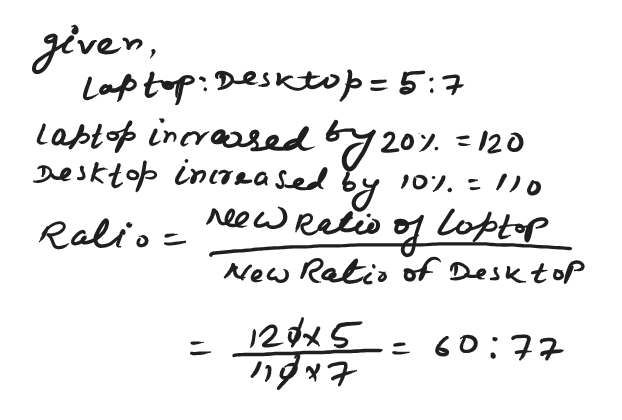 given,
Laptop: Desktop = 5:7
Laptop increased by 20%. = 120
Desktop increased by 10%. = 110
Ratio = New Ratio of laptop / New Ratio of Desktop
= 120 x 5 / 110 x 7 = 60:77